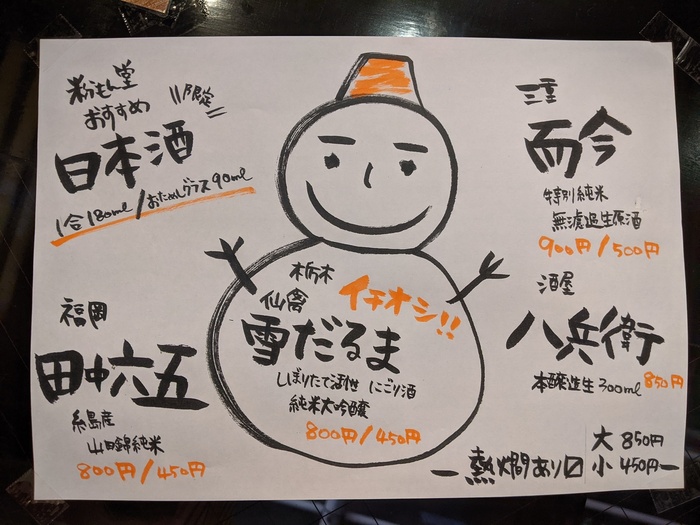 粉もん堂
おすすめ
限定
日本酒
1合180ml/おためしグラス90ml
三重
而今
特別純米
無濾過生原酒
900円/500円
栃木
仙禽
イチオシ!!
雪だるま
しぼりたて活性 にごり酒
純米大吟醸
800円/450円
福岡
田中六五
糸島産
山田錦純米
800円/450円
酒屋
八兵衛
本醸造生300ml 850円
熱燗あり〼
大 850円
小 450円